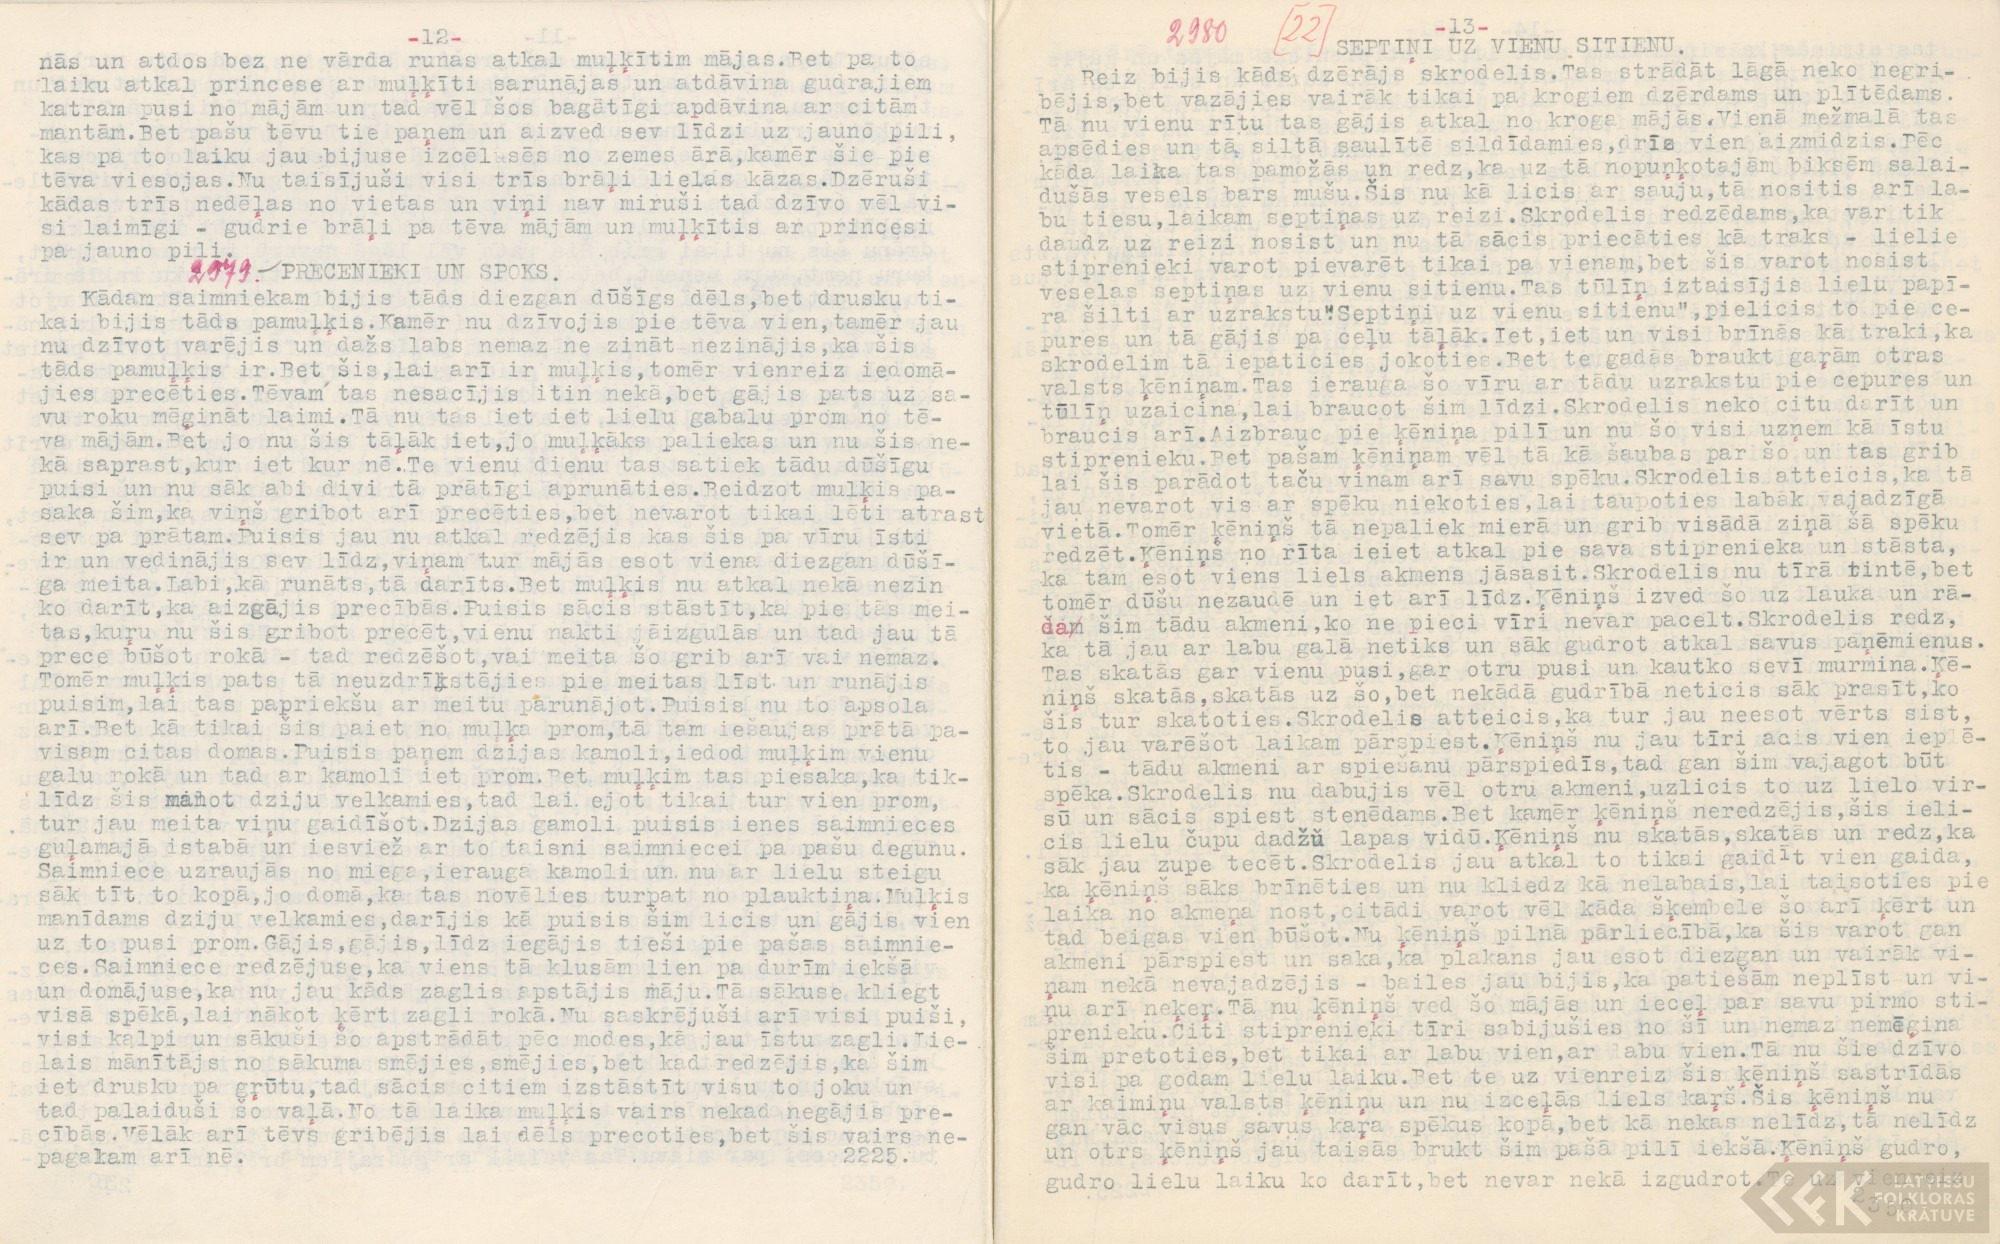 -12-
nās un atdos bez ne vārda runas atkal muļķītim mājas.Bet pa to
laiku atkal princese ar muļķīti sarunājas un atdāvina gudrajiem
katram pusi no mājām un tad vēl šos bagātīgi apdāvina ar citām
mantām.Bet pašu tēvu tie paņem un aizved sev līdzi uz jauno pili,
kas pa to laiku jau bijuse izcēlusēs no zemes ārā,kamēr šie pie
tēva viesojas.Nu taisījuši visi trīs brāļi lielas kāzas.Dzēruši
kādas trīs nedēļas no vietas un viņi nav miruši tad dzīvo vēl vi-
si laimīgi - gudrie brāļi pa tēva mājām un muļķītis ar princesi
pa jauno pili.
2979.- PRECENIEKI UN SPOKS.
Kādam saimniekam bijis tāds diezgan dūšīgs dēls,bet drusku ti-
kai bijis tāds pamuļķis.Kamēr nu dzīvojis pie tēva vien,tamēr jau
nu dzīvot varējis un dažs labs nemaz ne zināt nezinājis,ka šis
tāds pamuļķis ir.Bet šis,lai arī ir muļķis,tomēr vienreiz iedomā-
jies precēties.Tēvam tas nesacījis itin nekā,bet gājis pats uz sa-
vu roku mēgināt laimi.Tā nu tas iet iet lielu gabalu prom no tē-
va mājām.Bet jo nu šis tāļāk iet,jo muļķāks paliekas un nu šis ne-
kā saprast,kur iet kur nē.Te vienu dienu tas satiek tādu dūšīgu
puisi un nu sāk abi divi tā prātīgi aprunāties.Beidzot muļķis pa-
saka šim,ka viņš gribot arī precēties,bet nevarot tikai lēti atrast
sev pa prātam.Puisis jau nu atkal redzējis kas šis pa vīru īsti
ir un vedinājis sev līdz,viņam tur mājās esot viena diezgan dūšī-
ga meita.Labi,kā runāts,tā darīts.Bet muļķis nu atkal nekā nezin
ko darīt,ka aizgājis precībās.Puisis sācis stāstīt,ka pie tās mei-
tas,kuŗu nu šis gribot precēt,vienu nakti jāizgulās un tad jau tā
prece būšot rokā - tad redzēšot,vai meita šo grib arī vai nemaz.
Tomēr muļķis pats tā neuzdrīkstējies pie meitas līst un runājis
puisim,lai tas papriekšu ar meitu parunājot.Puisis nu to apsola
arī.Bet kā tikai šis paiet no muļķa prom,tā tam iešaujas prātā pa-
visam citas domas.Puisis paņem dzijas kamoli,iedod muļķim vienu
galu rokā un tad ar kamoli iet prom.Bet muļķim tas piesaka,ka tik-
līdz šis mahot dziju velkamies,tad lai ejot tikai tur vien prom,
tur jau meita viņu gaidīšot.Dzijas gamoli puisis ienes saimnieces
guļamajā istabā un iesviež ar to taisni saimniecei pa pašu degunu.
Saimniece uzraujās no miega,ierauga kamoli un nu ar lielu steigu
sāk tīt to kopā,jo domā,ka tas novēlies turpat no plauktiņa.Muļķis
manīdams dziju velkamies,darījis kā puisis šim licis un gājis vien
uz to pusi prom.Gājis,gājis,līdz iegājis tieši pie pašas saimnie-
ces.Saimniece redzējuse,ka viens tā klusām lien pa durīm iekšā
un domājuse,ka nu jau kāds zaglis apstājis māju.Tā sākuse kliegt
visā spēkā,lai nākot ķērt zagli rokā.Nu saskrējuši arī visi puiši,
visi kalpi un sākuši šo apstrādāt pēc modes,kā jau īstu zagli.Lie-
lais mānītājs no sākuma smējies,smējies,bet kad redzējis,ka šim
iet drusku pa grūtu,tad sācis citiem izstāstīt visu to joku un
tad palaiduši šo vaļā.No tā laika muļķis vairs nekad negājis pre-
cībās.Vēlāk arī tēvs gribējis lai dēls precoties,bet šis vairs ne-
pagalam arī nē. 2225.
2980 [22] -13-
SEPTIŅI UZ VIENU SITIENU.
Reiz bijis kāds dzērājs skrodelis.Tas strādāt lāgā neko negri-
bējis,bet vazājies vairāk tikai pa krogiem dzērdams un plītēdams.
Tā nu vienu rītu tas gājis atkal no kroga mājās.Vienā mežmalā tas
apsēdies un tā siltā saulītē sildīdamies,drīs vien aizmidzis.Pēc
kāda laika tas pamožās un redz,ka uz tā nopuņķotajām biksēm salai-
dušās vesels bars mušu.Šis nu kā licis ar sauju,tā nositis arī la-
bu tiesu,laikam septiņas uz reizi.Skrodelis redzēdams,ka var tik
daudz uz reizi nosist un nu tā sācis priecāties kā traks - lielie
stiprenieki varot pievarēt tikai pa vienam,bet šis varot nosist
veselas septiņas uz vienu sitienu.Tas tūlīņ iztaisījis lielu papī-
ra šilti ar uzrakstu"Septiņi uz vienu sitienu",pielicis to pie ce-
pures un tā gājis pa ceļu tāļāk.Iet,iet un visi brīnēs kā traki,ka
skrodelim tā iepaticies jokoties.Bet te gadās braukt gaŗām otras
valsts ķēniņam.Tas ierauga šo vīru ar tādu uzrakstu pie cepures un
tūlīņ uzaicina,lai braucot šim līdzi.Skrodelis neko citu darīt un
braucis arī.Aizbrauc pie ķēniņa pilī un nu šo visi uzņem kā īstu
stiprenieku.Bet pašam ķēniņam vēl tā kā šaubas par šo un tas grib
lai šis parādot taču viņam arī savu spēku.Skrodelis atteicis,ka tā
jau nevarot vis ar spēku niekoties,lai taupoties labāk vajadzīgā
vietā.Tomēr ķēniņš tā nepaliek mierā un grib visādā ziņā šā spēku
redzēt.Ķēniņš no rīta ieiet atkal pie sava stiprenieka un stāsta,
ka tam esot viens liels akmens jāsasit.Skrodelis nu tīrā tintē,bet
tomēr dūšu nezaudē un iet arī līdz.Ķēniņš izved šo uz lauka un rā-
da šim tādu akmeni,ko ne pieci vīri nevar pacelt.Skrodelis redz,
ka tā jau ar labu galā netiks un sāk gudrot atkal savus paņēmienus.
Tas skatās gar vienu pusi,gar otru pusi un kautko sevī murmina.Ķē-
niņš skatās,skatās uz šo,bet nekādā gudrībā neticis sāk prasīt,ko
šis tur skatoties.Skrodelis atteicis,ka tur jau neesot vērts sist,
to jau varēšot laikam pārspiest.Ķēniņš nu jau tīri acis vien ieplē-
tis - tādu akmeni ar spiešanu pārspiedīs,tad gan šim vajagot būt
spēka.Skrodelis nu dabujis vēl otru akmeni,uzlicis to uz lielo vir-
sū un sācis spiest stenēdams.Bet kamēr ķēniņš neredzējis,šis ieli-
cis lielu čupu dadžu lapas vidū.Ķēniņš nu skatās,skatās un redz,ka
sāk jau zupe tecēt.Skrodelis jau atkal to tikai gaidīt vien gaida,
ka ķēniņš sāks brīnēties un nu kliedz kā nelabais,lai taisoties pie
laika no akmeņa nost,citādi varot vēl kāda šķembele šo arī ķērt un
tad beigas vien būšot.Nu ķēniņš pilnā pārliecībā,ka šis varot gan
akmeni pārspiest un saka,ka plakans jau esot diezgan un vairāk vi-
ņam nekā nevajadzējis - bailes jau bijis,ka patiešām neplīst un vi-
ņu arī neķeŗ.Tā nu ķēniņš ved šo mājās un ieceļ par savu pirmo sti-
prenieku.Citi stiprenieķi tīri sabijušies no šī un nemaz nemēģina
šim pretoties,bet tikai ar labu vien,ar labu vien.Tā nu šie dzīvo
visi pa godam lielu laiku.Bet te uz vienreiz šis ķēniņš sastrīdās
ar kaimiņu valsts ķēniņu un nu izceļās liels kaŗš.Šis ķēniņš nu
gan vāc visus savus kaŗa spēkus kopā,bet kā nekas nelīdz,tā nelīdz
un otrs ķēniņš jau taisās brukt šim pašā pilī iekšā.Ķēniņš gudro,
gudro lielu laiku ko darīt,bet nevar nekā izgudrot.Te uz vienreiz
LATVIEŠU
FOLKLORAS
KRĀTUVE